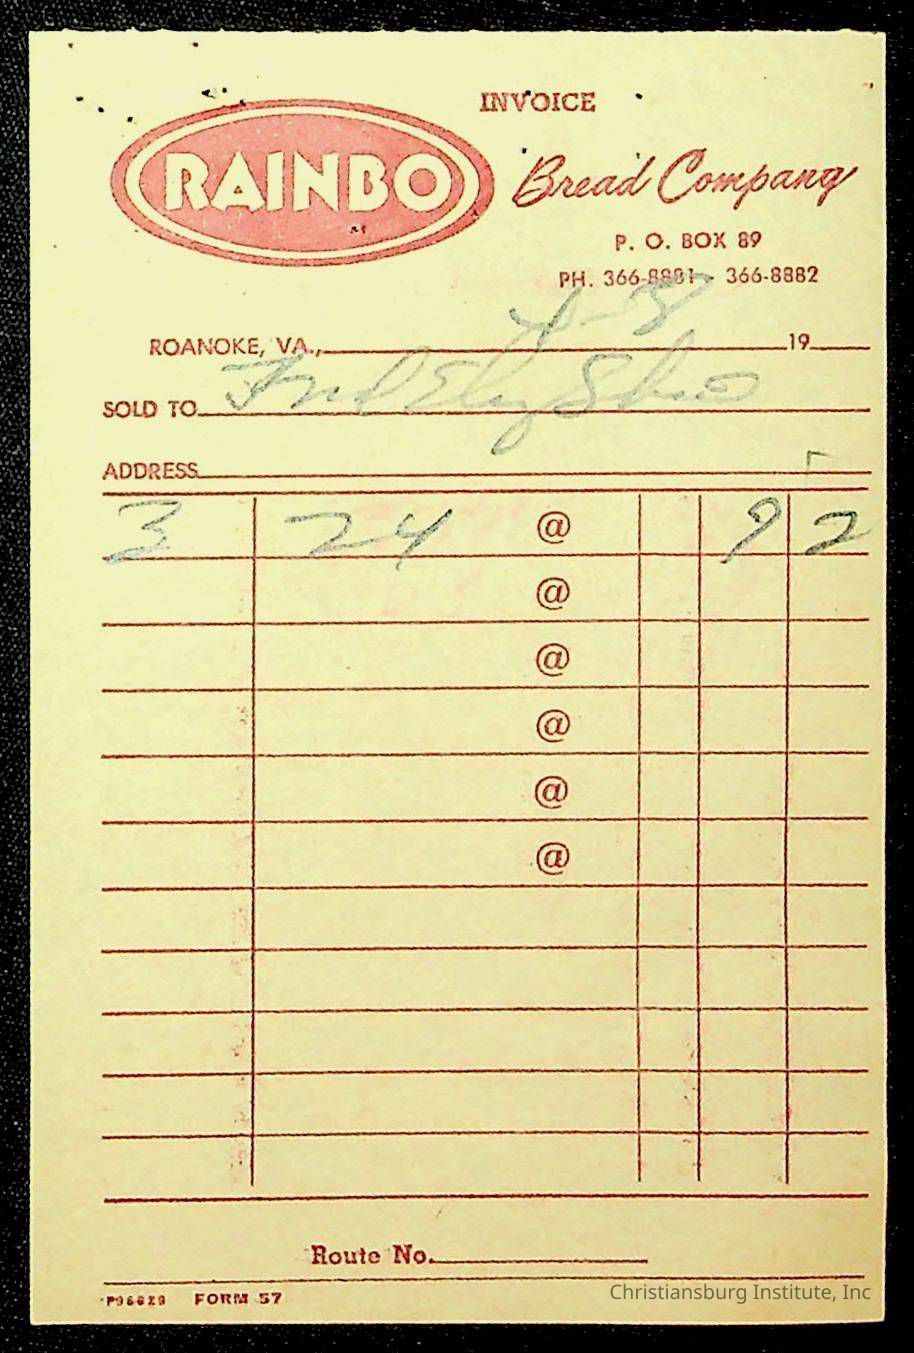 INVOICE
RAINBO Bread Company
P. O. BOX 89
PH. 366-8881 - 366-8882
4-8
ROANOKE, VA., 19
SOLD TO
ADDRESS
3 24 @ 92
@
@
@
@
@
Route No.
FORM 57
Christiansburg Institute, Inc